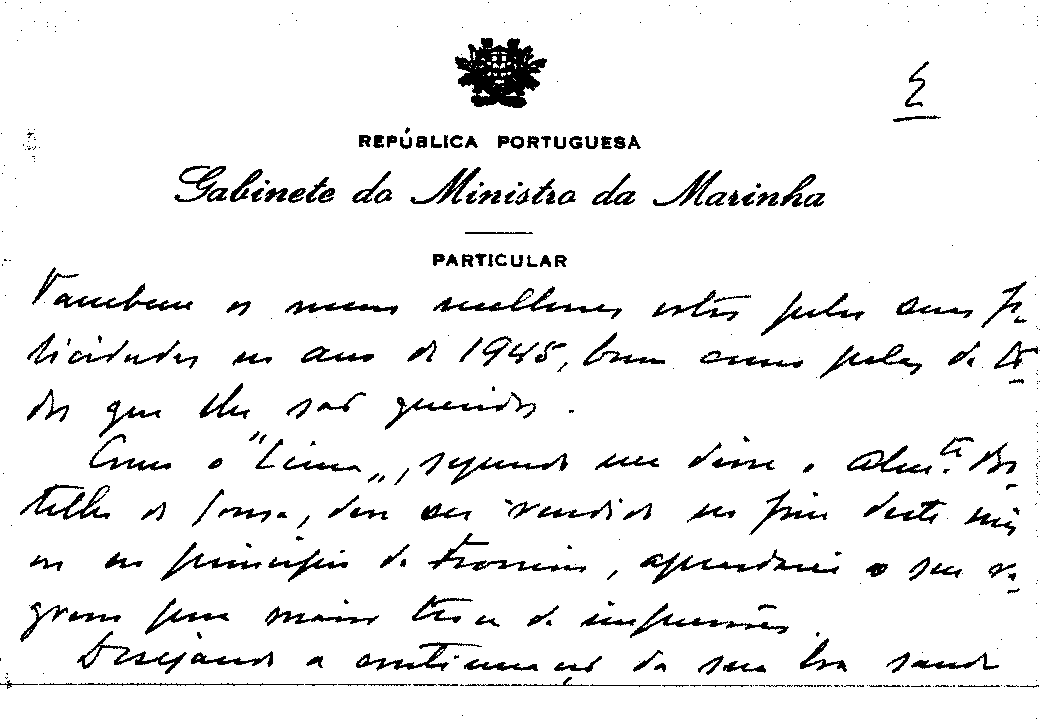 2
REPÚBLICA PORTUGUESA
Gabinete do Ministro da Marinha
PARTICULAR
Tambem os meus melhores votos pelas suas fe-
licidades no ano de 1945, bem como pelas de to-
dos que lhe são queridos.
Como o "Lima", segundo me disse o Almte. Bo-
telho de Sousa, deve ser vendido no fim deste mês
ou no principio de Fevereiro, aguardarei o seu re-
gresso para maior troca de impressões.
Desejando a continuação da sua boa saude